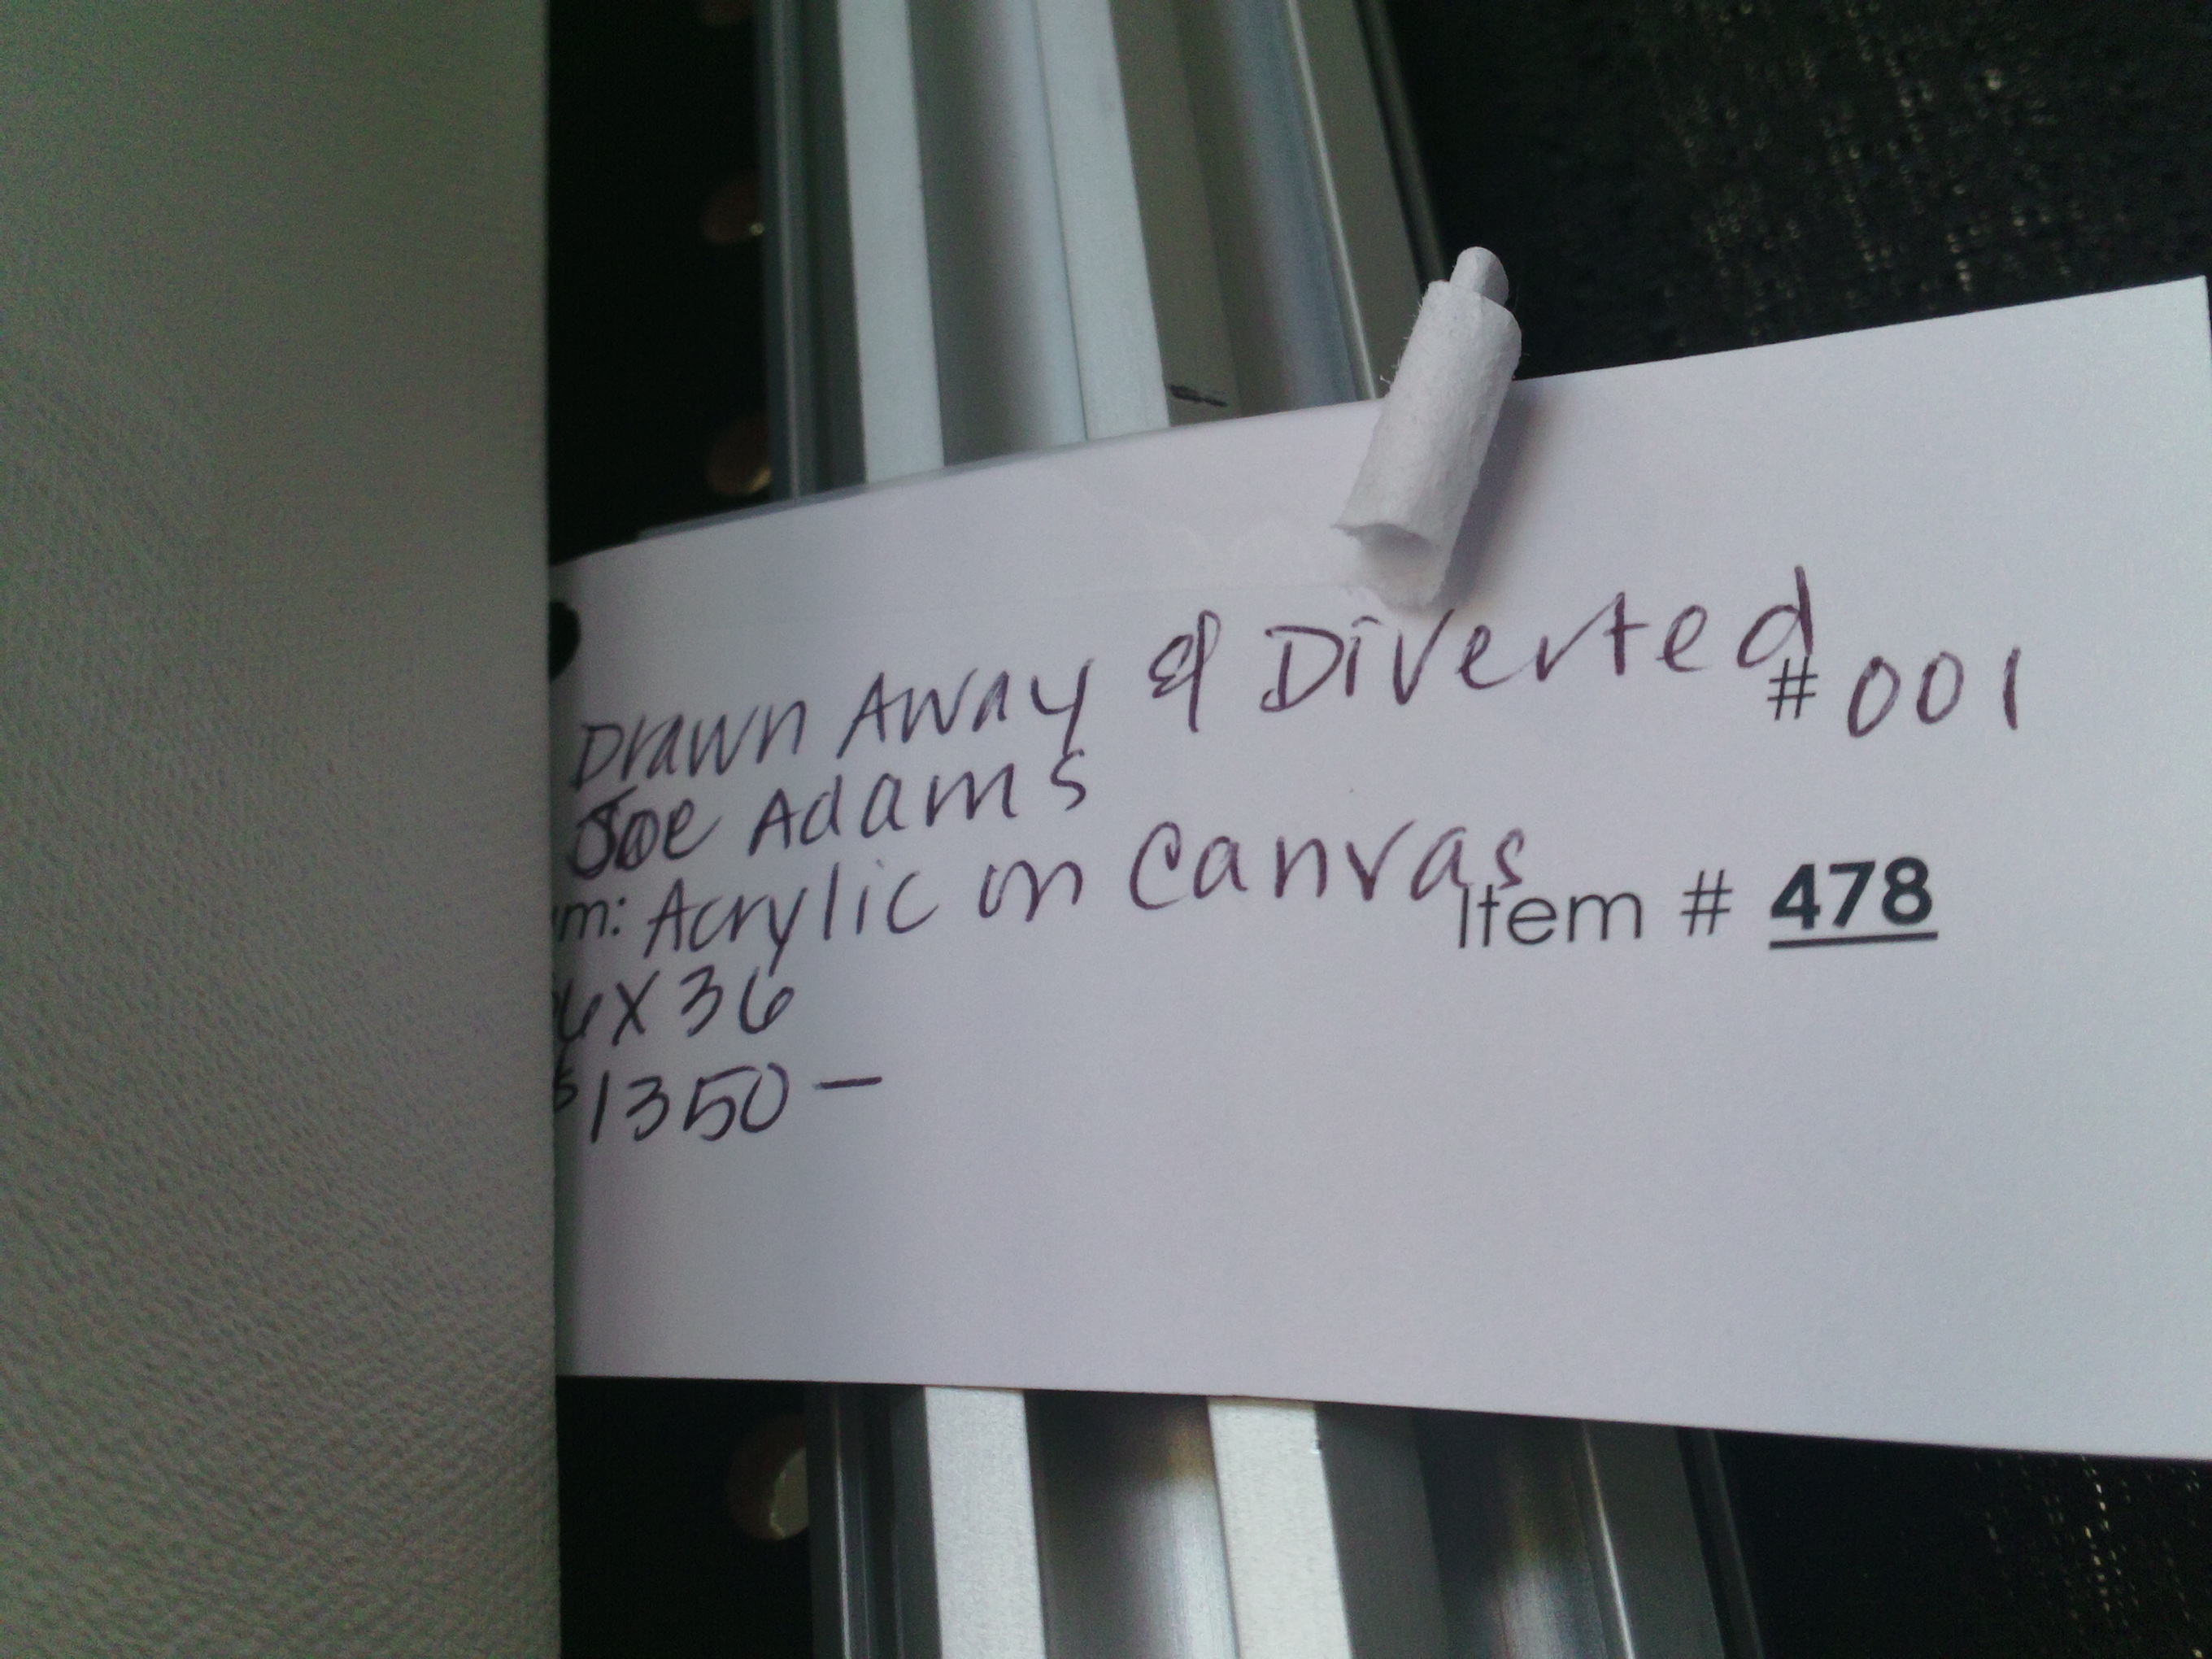 Drawn Away & Diverted
# 001
Joe Adams
m: Acrylic on Canvas
Item # 478
6 X 36
$1350 —